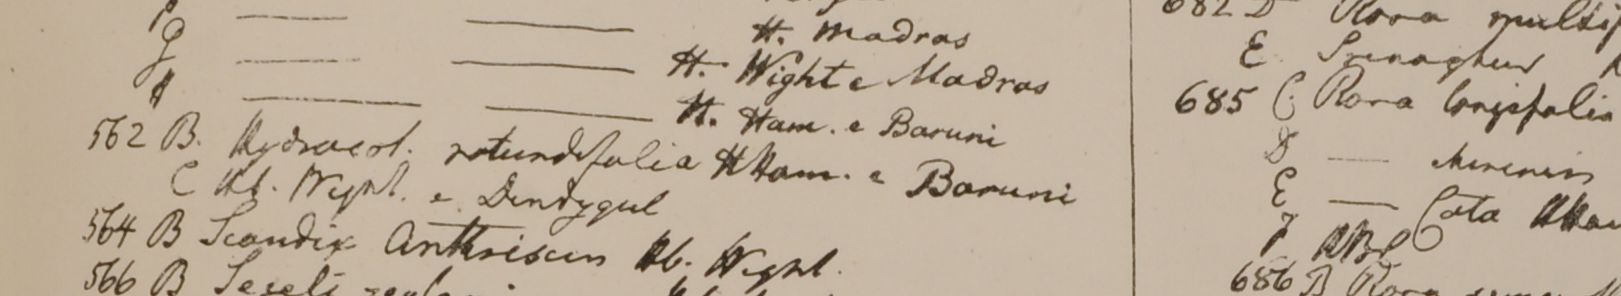 F
G ——— ——— H. Madras
——— ——— H. Wight e Madras
H ——— ——— H. Ham. e Baruni
562 B. Hydrocot. rotundifolia HHam. e Baruni
C Hb. Wight. e Dindygul
564 B Scandix Anthriscus Hb. Wight.
566 B Seseli
682 D Rosa
E Srenaghur
685 C Rosa longifolia
D ———
E ——— HHam
F HBC
686 B Rosa